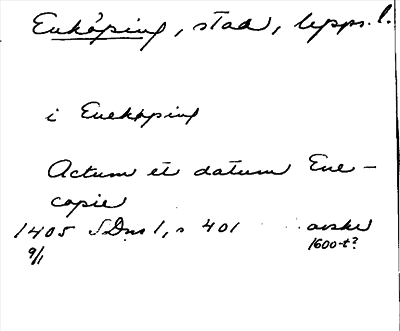 Enköping, stad, Upps. l.
i Enekøping
Actum et datum Ene-
copie
1405 SDns 1, s 401 avskr
9/1 1600-t?